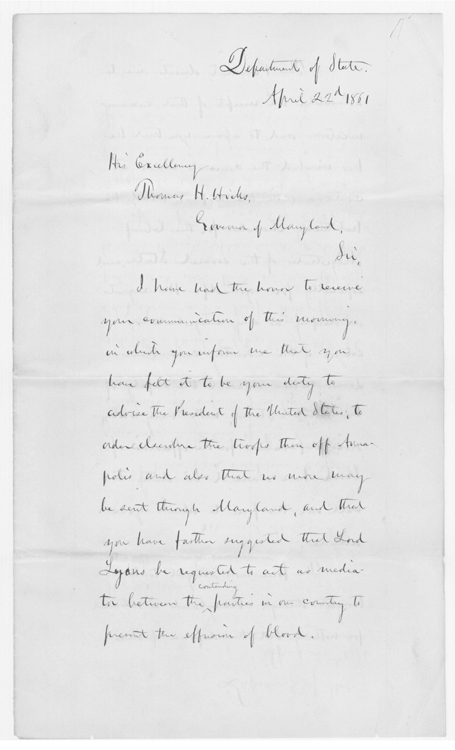 Department of State.
April 22d 1861
His Excellency
Thomas H. Hicks,
Governor of Maryland.
Sir,
I have had the honor to receive
your communication of this morning,
in which you inform me that you
have felt it to be your duty to
advise the President of the United States, to
order elsewhere the troops then off Anna-
polis and also that no more may
be sent through Maryland, and that
you have farther suggested that Lord
Lyons be requested to act as media-
tor between the contending parties in our country to
prevent the effusion of blood.